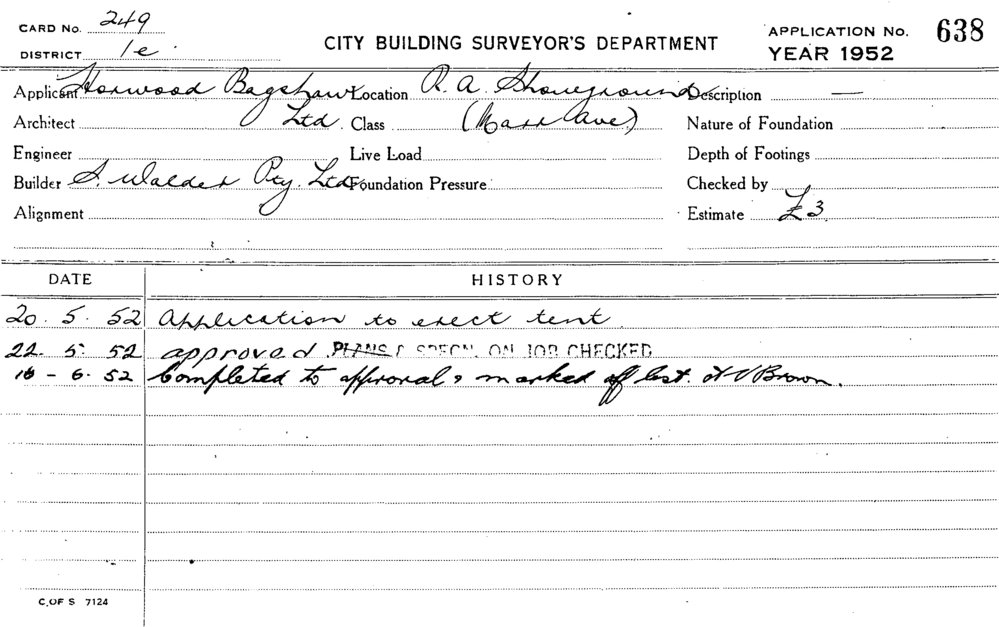 CARD No. 249
DISTRICT 1e
CITY BUILDING SURVEYOR'S DEPARTMENT
APPLICATION No. 638
YEAR 1952
Applicant Horwood Bagshaw Location R. A. Showground Description —
Architect Ltd. Class (Mass Ave.) Nature of Foundation
Engineer Live Load Depth of Footings
Builder S. Walder Pty. Ltd. Foundation Pressure Checked by
Alignment Estimate £3
DATE HISTORY
20. 5. 52 Application to erect tent
22. 5. 52 approved PLANS & SPECN. ON JOB CHECKED
16 - 6. 52 Completed to approval & marked off list. Brown.
C. OF S 7124